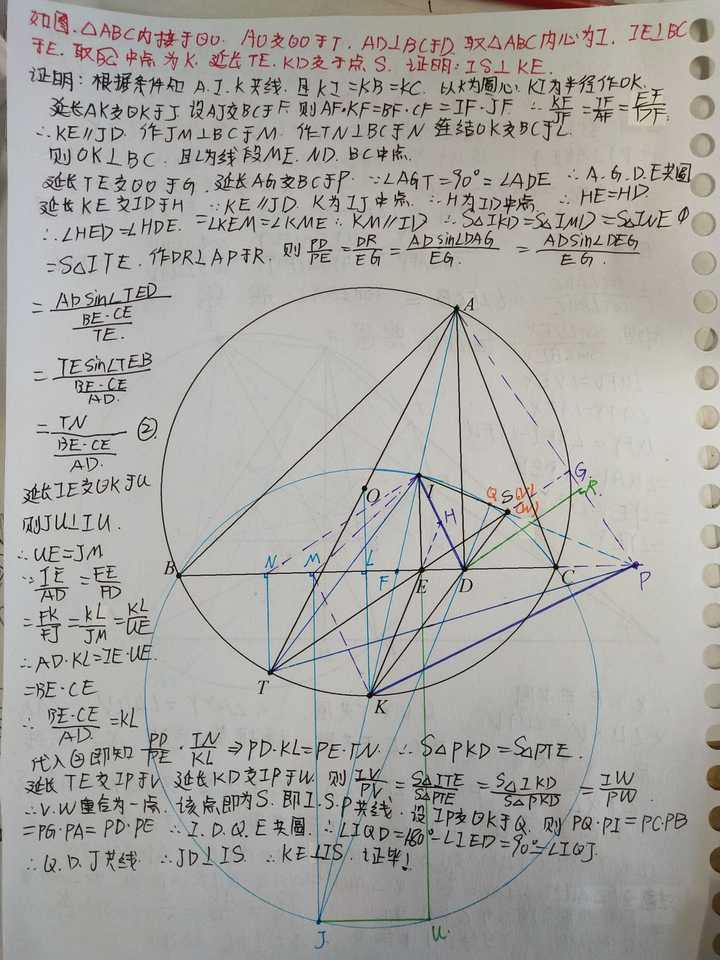 如图.△ABC内接于⊙O. AO交⊙O于T. AD⊥BC于D. 取△ABC内心为I. IE⊥BC
于E. 取BC中点为K. 延长TE.KD交于点S. 证明:IS⊥KE.
证明:根据条件知 A.I.K共线.且KI=KB=KC. 以K为圆心.KI为半径作⊙K.
延长AK交⊙K于J.设AJ交BC于F.则AF·KF=BF·CF=IF·JF ∴KF/JF=IF/AF=EF/DF.
∴KE∥JD. 作JM⊥BC于M. 作TN⊥BC于N 连结OK交BC于L.
则OK⊥BC. 且L为线段ME.ND.BC中点.
延长TE交⊙O于G.延长AG交BC于P ∵∠AGT=90°=∠ADE ∴A.G.D.E共圆
延长KE交ID于H ∵KE∥JD. K为IJ中点. ∴H为ID中点 ∴HE=HD.
∴∠HED=∠HDE.=∠KEM=∠KME ∴KM∥ID ∴S△IKD=S△IMD=S△INE ①
=S△ITE.作DR⊥AP于R. 则PD/PE=DR/EG=ADsin∠DAG/EG.=ADsin∠DEG/EG.
=ADsin∠TED/(BE·CE/TE.
=TEsin∠TEB/(BE·CE/AD.
=TN/(BE·CE/AD. ②.
延长IE交⊙K于U
则JU⊥IU.
∴UE=JM
∵IE/AD=FE/FD
=FK/FJ=KL/JM=KL/UE
∴AD·KL=IE·UE.
=BE·CE
∴BE·CE/AD.=KL
代入②即知PD/PE·TN/KL⇒PD·KL=PE·TN. ∴S△PKD=S△PTE.
延长TE交IP于V.延长KD交IP于W.则IV/PV=S△ITE/S△PTE=S△IKD/S△PKD=IW/PW
∴V.W重合为一点.该点即为S.即I.S.P共线.设IP交⊙K于Q.则PQ·PI=PC·PB
=PG·PA=PD·PE ∴I.D.Q.E共圆.∴∠IQD=180°-∠IED=90°=∠IQJ.
∴Q.D.J共线. ∴JD⊥IS. ∴KE⊥IS.证毕!
A
G.
R.
Q
S(V)
(W)
O
I
H
B
N
M
L
F
E
D
C
P
T
K
J.
U.